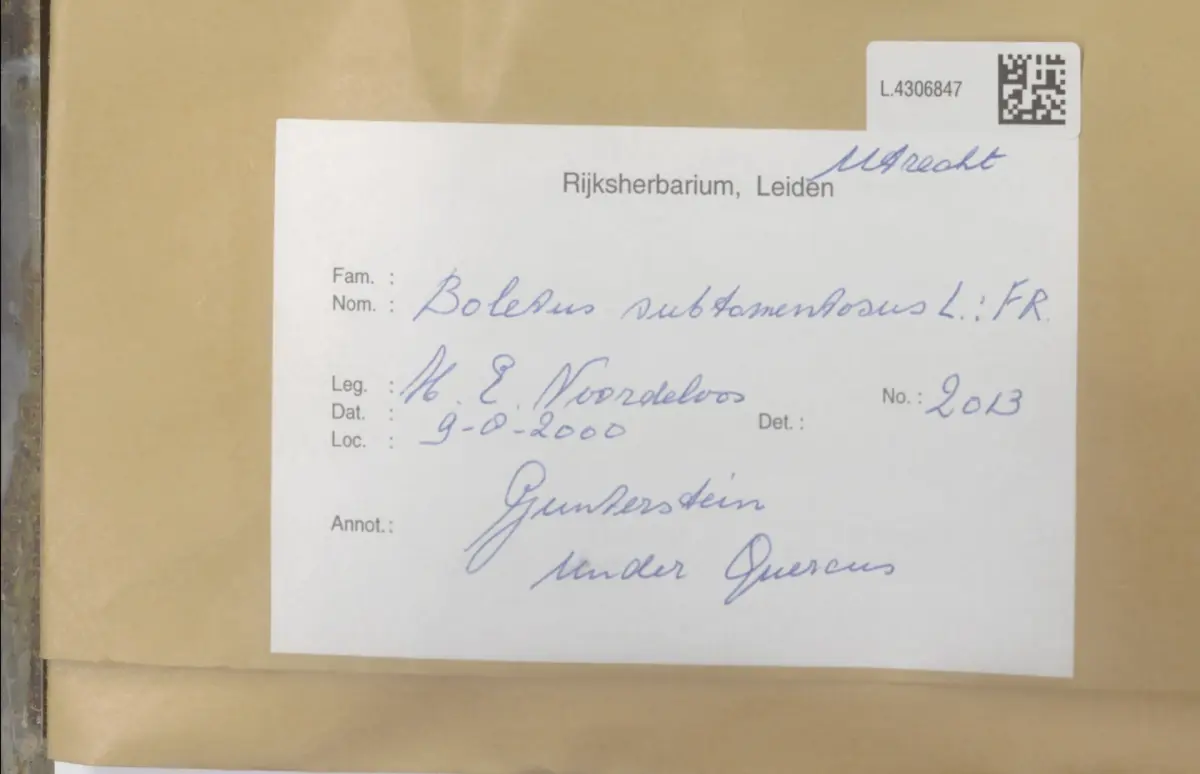 L.4306847
Utrecht
Rijksherbarium, Leiden
Fam. :
Nom. : Boletus subtomentosus L.: FR.
Leg. : M. E. Noordeloos No. : 2013
Dat. : 9-8-2000 Det. :
Loc. :
Gunterstein
Annot. :
under Quercus